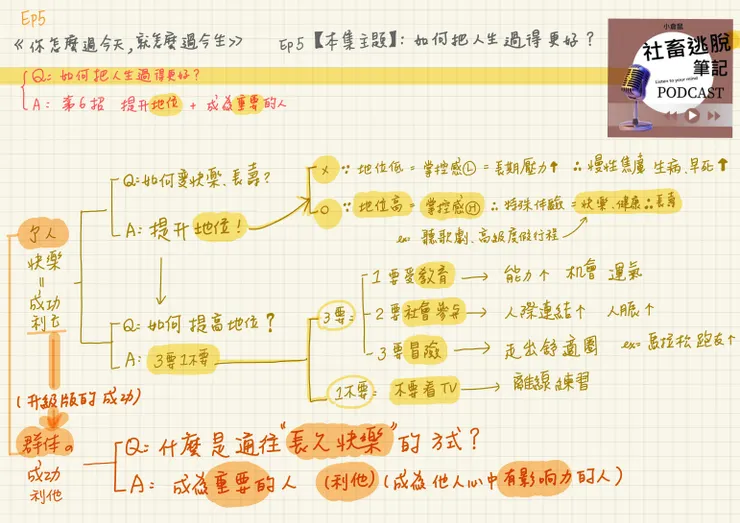 Ep5
《你怎麼過今天,就怎麼過今生》 Ep5【本集主題】: 如何把人生過得更好?
Q: 如何把人生過得更好?
A: 第6招 提升地位 + 成為重要的人
小倉鼠
社畜逃脫
筆記
Listen to your mind
PODCAST
個人
快樂
=
成功
利己
Q: 如何變快樂、長壽?
A: 提升地位!
X ∵ 地位低 = 掌控感Ⓛ = 長期壓力↑ ∴ 慢性焦慮 生病、早死↑
O ∵ 地位高 = 掌控感Ⓗ ∴ 特殊体驗 = 快樂、健康 ∴ 長壽
ex: 聽歌劇、高級度假行程
Q: 如何提高地位?
A: 3要1不要
3要:
1 要受教育 → 能力↑ 機會 運氣
2 要社會參与 → 人際連結↑ 人脈↑
3 要冒險 → 走出舒適圈 ex: 馬拉松跑友↑
1不要: 不要看TV → 離線練習
(升級版的成功)
群体。
成功
利他
Q: 什麼是通往"長久快樂"的方式?
A: 成為重要的人 (利他) (成為他人心中有影響力的人)